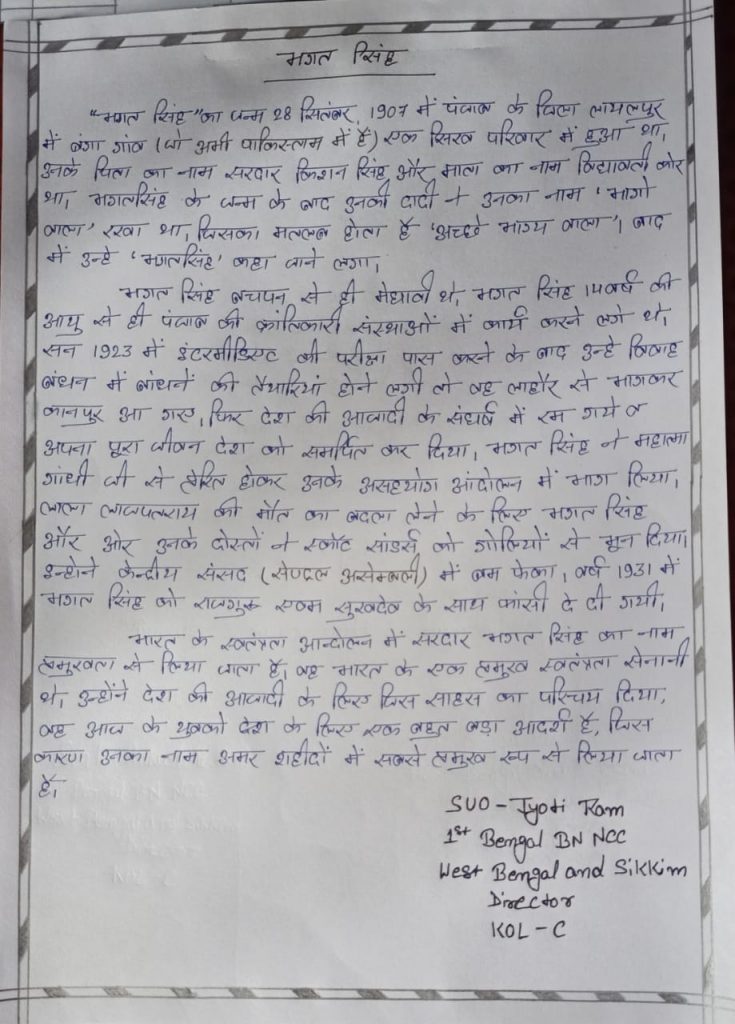 भगत सिंह
"भगत सिंह" का जन्म 28 सितंबर, 1907 में पंजाब के जिला लायलपुर
में बंगा गांव (जो अभी पाकिस्तान में है) एक सिख परिवार में हुआ था,
उनके पिता का नाम सरदार किशन सिंह और माता का नाम विद्यावती कोर
था, भगतसिंह के जन्म के बाद उनकी दादी ने उनका नाम 'भागो
वाला' रखा था, जिसका मतलब होता है 'अच्छे भाग्य वाला'। बाद
में उन्हे 'भगतसिंह' कहा जाने लगा,
भगत सिंह बचपन से ही मेधावी थे, भगत सिंह 14 वर्ष की
आयु से ही पंजाब की क्रांतिकारी संस्थाओं में कार्य करने लगे थे,
सन 1923 में इंटरमीडिएट की परीक्षा पास करने के बाद उन्हे विवाह
बंधन में बांधनें की तैयारियां होने लगी तो वह लाहौर से भागकर
कानपुर आ गए, फिर देश की आजादी के संघर्ष में रम गये व
अपना पूरा जीवन देश को समर्पित कर दिया, भगत सिंह ने महात्मा
गांधी जी से प्रेरित होकर उनके असहयोग आंदोलन में भाग लिया,
लाला लाजपतराय की मौत का बदला लेने के लिए भगत सिंह
और ओर उनके दोस्तों ने स्कॉट सांडर्स को गोलियों से भून दिया,
इन्होने केन्दीय संसद (सेण्ट्रल असेम्बली) में बम फेका, वर्ष 1931 में
भगत सिंह को राजगुरू एवम सुखदेव के साथ फांसी दे दी गयी,
भारत के स्वतंत्रता आन्दोलन में सरदार भगत सिंह का नाम
प्रमुखता से लिया जाता है, वह भारत के एक प्रमुख स्वतंत्रता सेनानी
थे, उन्होंने देश की आजादी के लिए जिस साहस का परिचय दिया,
वह आज के युवको देश के लिए एक बहुत बड़ा आदर्श है, जिस
कारण उनका नाम अमर शहीदों में सबसे प्रमुख रूप से लिया जाता
है,
SUO - Jyoti Ram
1st Bengal BN NCC
West Bengal and Sikkim
Director
KOL - C